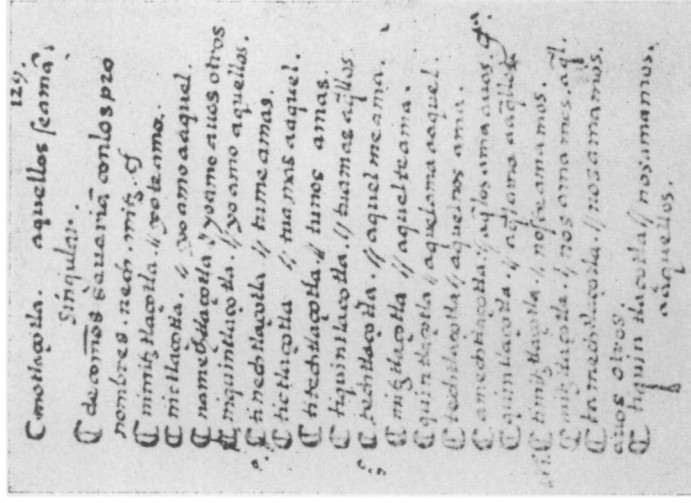 129.
Ⅽ motlaçotla. aquellos se amā.
Singular.
Ⅽ de como se uariā con los pro
nombres. nech. mitz. &
Ⅽ nimitztlaçotla. ꝭ yo te amo.
Ⅽ nictlaçotla. ꝭ yo amo a aquel.
Ⅽ namechtlaçotla ꝭ yo amo a uos otros
Ⅽ niquintlaçotla. ꝭ yo amo a aquellos.
Ⅽ tinechtlaçotla ꝭ tu me amas.
Ⅽ tictlaçotla ꝭ tu amas a aquel
Ⅽ titechtlaçotla ꝭ tu nos amas.
Ⅽ tiquintlaçotla ꝭ tu amas a aq̄llos
Ⅽ nechtlaçotla. ꝭ aquel me ama.
Ⅽ mitztlaçotla ꝭ aquel te ama.
Ⅽ quintlaçotla ꝭ aquel ama a aquel.
Ⅽ techtlaçotla ꝭ aquel nos ama.
Ⅽ amechtlaçotla ꝭ aq̄l os ama a uos.
Ⅽ quintlaçotla. ꝭ aq̄l ama a aq̄llos
Ⅽ timitztlaçotla ꝭ nos te amamos.
Ⅽ tictlaçotla. ꝭ nos amamos a aq̄l.
Ⅽ tamechtlaçotla. ꝭ nos amamos.
a uos otros.
Ⅽ tiquintlaçotla ꝭ nos amamos.
a aquellos.